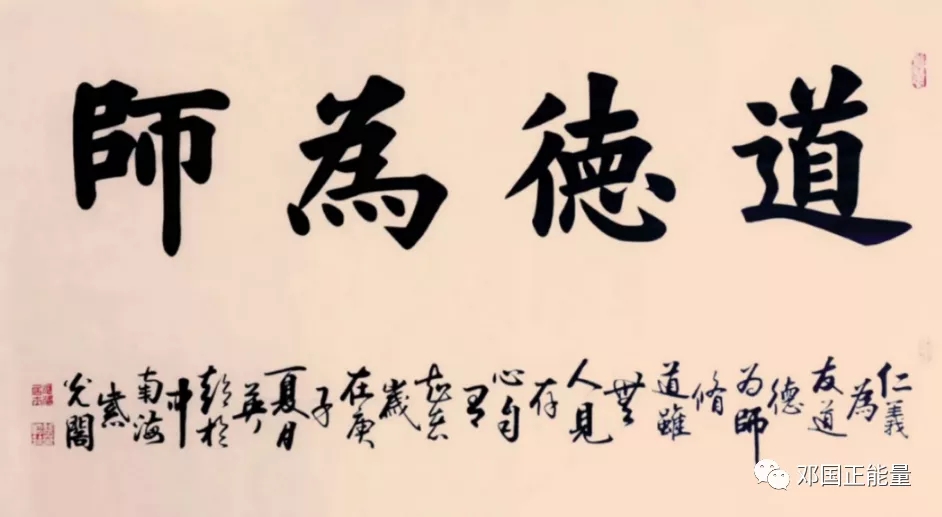 道德為師
仁義
為
友道
德
为師
脩
道雖
無
人見
存
心自
有
歲
在庚
子
夏月
英
彭於
中
南海
紫
光閣
邓国正能量